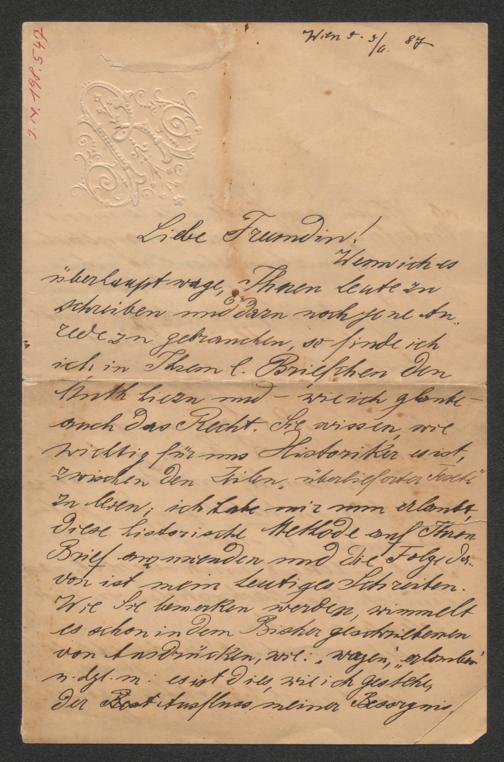 J. N. 198.542
Wien 5. 3/6. 87
Liebe Freundin!
Wenn ich es
überhaupt wage, Ihnen heute zu
schreiben und dazu noch jene An-
rede zu gebrauchen, so finde ich
ich in Ihrem l. Briefchen den
Muth hiezu und – wie ich glaube –
auch das Recht. Sie wissen, wie
wichtig für uns Historiker es ist,
zwischen den Zeilen „überlieferter Texte“
zu lesen; ich habe mir nun erlaubt,
diese historische Methode auf Ihren
Brief anzuwenden und die Folge da-
von ist mein heutiges Schreiben.
Wie Sie bemerken werden, wimmelt
es schon in dem Bisher geschriebenen
von Ausdrücken, wie: „wagen“, „erlauben“
u. dgl. m.: es ist dies, wie ich gestehe,
der Ausfluss meiner Besorgnis,